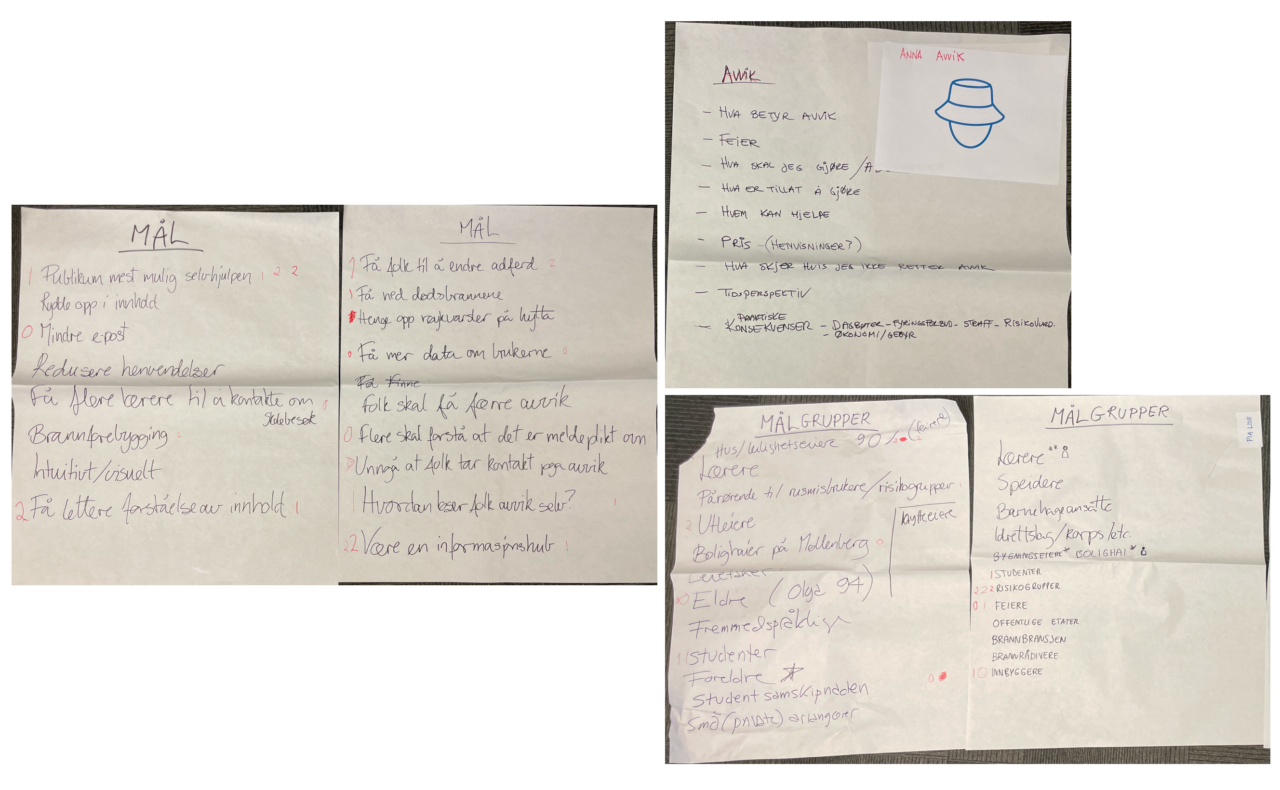 MÅL
1 Publikum mest mulig selvhjulpen 1 2 2
Rydde opp i innhold
0 Mindre epost
Redusere henvendelser
Få flere lærere til å kontakte om
skolebesøk
Brannforebygging
Intuitivt/visuelt
2 Få lettere forståelse av innhold 1
MÅL
Få folk til å endre adferd 2
1 Få ned dødsbrannene
Henge opp røykvarsler på hytta
0 Få mer data om brukerne 0
Få finne
folk skal få færre avvik
0 Flere skal forstå at det er meldeplikt om
Unngå at folk tar kontakt pga avvik
Hvordan løser folk avvik selv?
22 Være en informasjonshub 1
AVVIK
ANNA AVVIK
- HVA BETYR AVVIK
- FEIER
- HVA SKAL JEG GJØRE /
- HVA ER TILLAT Å GJØRE
- HVEM KAN HJELPE
- PRIS - (HENVISNINGER?)
- HVA SKJER HVIS JEG IKKE RETTER AVVIK
- TIDSPERSPEKTIV
PRAKTISKE
- KONSEKVENSER - DAGBØTER - FYRINGSFORBUD - STRAFF - RISIKOVURD.
- ØKONOMI/GEBYR
MÅLGRUPPER
Hus/leilighetseiere 90% (feiere)
Lærere
Pårørende til rusmisbrukere/risikogrupper
2 Utleiere
hytteeiere
Bolighaier på Møllenberg 0
Eldre (Olga 94)
Fremmedspråklige
1 Studenter
Foreldre
Student samskipnaden
Små (private) arrangører
MÅLGRUPPER
PIA LISE
Lærere
Speidere
Barnehageansatte
Idrettslag/korps/etc.
BYGNINGSEIERE* BOLIGHAI*
1 STUDENTER
222 RISIKOGRUPPER
0 1 FEIERE
OFFENTLIGE ETATER
BRANNBRANSJEN
BRANNRÅDIVERE
10 INNBYGGERE